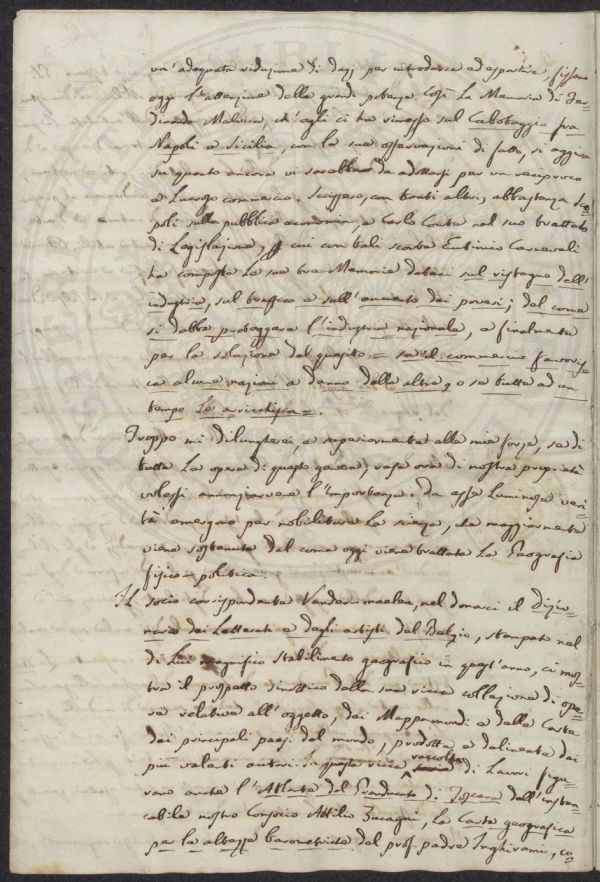 un'adequata riduzione di dazj per introdurre ed esportare, fissano
oggi l'attenzione delle grandi potenze. Così La Memoria di Fer-
dinando Malvica, ch'egli ci ha rimesso sul Cabotaggio fra
Napoli e Sicilia, con le sue osservazioni di fatto, si aggira
su quanto ancora vi sarebbe da adottarsi per un reciproco
e Lucroso commercio. Scrissero, con tanti altri, abbastanza
poli sulla pubblica economia, e Carlo Conta nel suo trattato
di Legislazione, cui con tali scorte Eutimio Carnevali
ha composto Le sue tre Memorie dateci sul ristagno dell'
industria, sul traffico e sull'aumento dei poveri; del come
si debba proteggere l'industria nazionale, e finalmente
per la soluzione del quesito = se il commercio favoris-
ca alcune nazioni a danno delle altre, o se tutte ad un
tempo Le arricchisca =.
Troppo mi dilungherei, e superiormente alle mie forze, se di
tutte Le opere di questo genere, rese ora di nostra proprietà
volessi annoverarne l'importanza. Da esse Luminose veri-
tà emergono per nobilitare La scienza, che maggiormente
viene sostenuta dal come oggi viene trattata La Geografia
fisico-politica.
Il socio corrispondente Vander-maelen, nel donarci il Dizio-
nario dei Letterati e degli artisti del Belgio, stampato nel
di Lui magnifico Stabilimento geografico in quest'anno, ci mos-
tra il prospetto sinottico della sua ricca collezione di ope-
re relative all'oggetto, dei Mappamondi e delle Carte
dei principali paesi del mondo, prodotte e delineate dai
più valenti autori. In questa ricca raccolta di Lavori figu-
rano anche l'Atlante del Granducato di Toscana dell'instan-
cabile nostro Consocio Attilio Zuccagni, la Carta geografica
per le altezze barometriche del prof. padre Inghirami, co-